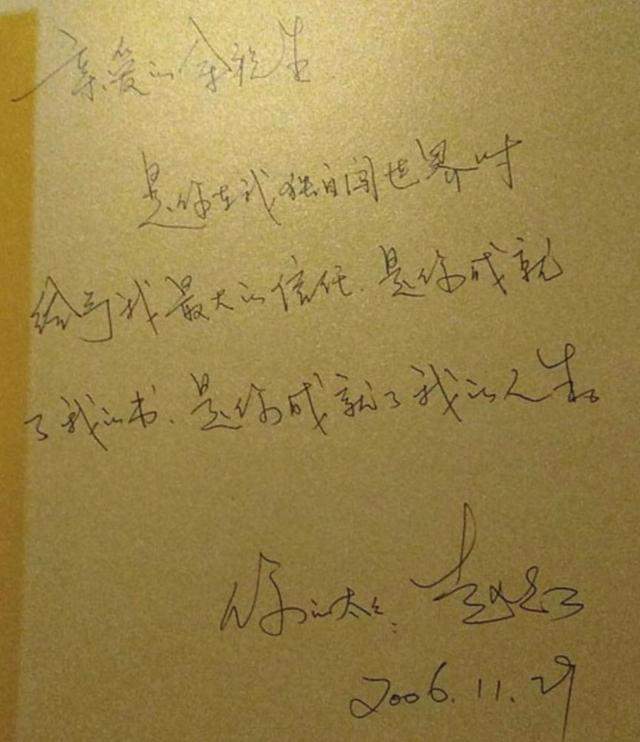 亲爱的余先生
是你在我独自闯世界时
给予我最大的信任.是你成就
了我的书、是你成就了我的人生。
你的太太: 赵
2006.11.29